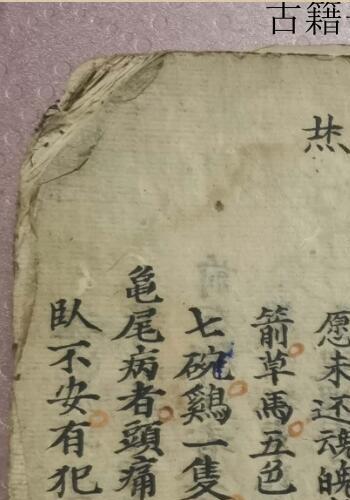 古籍
愿未还魂魄
箭草馬五色
七碗鷄一隻
龟尾病者頭痛
臥不安有犯